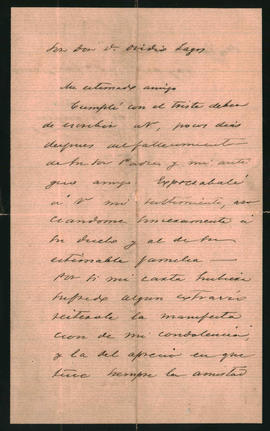 Sor Don D. Ovidio Lagos
Mi estimado amigo
Cumplí con el triste deber
de escribir a V. pocos dias
despues del fallecimiento
de su Sor Padre y mi anti
guo amigo Expresabale
á V mi sentimiento, aso
ciandome sinceramente á
su duelo y al de su
estimable familia —
Por si mi carta hubiese
sufrido algun extravio
reiterole la manifesta
cion de mi condolencia,
y la del aprecio en que
tuve siempre la amistad